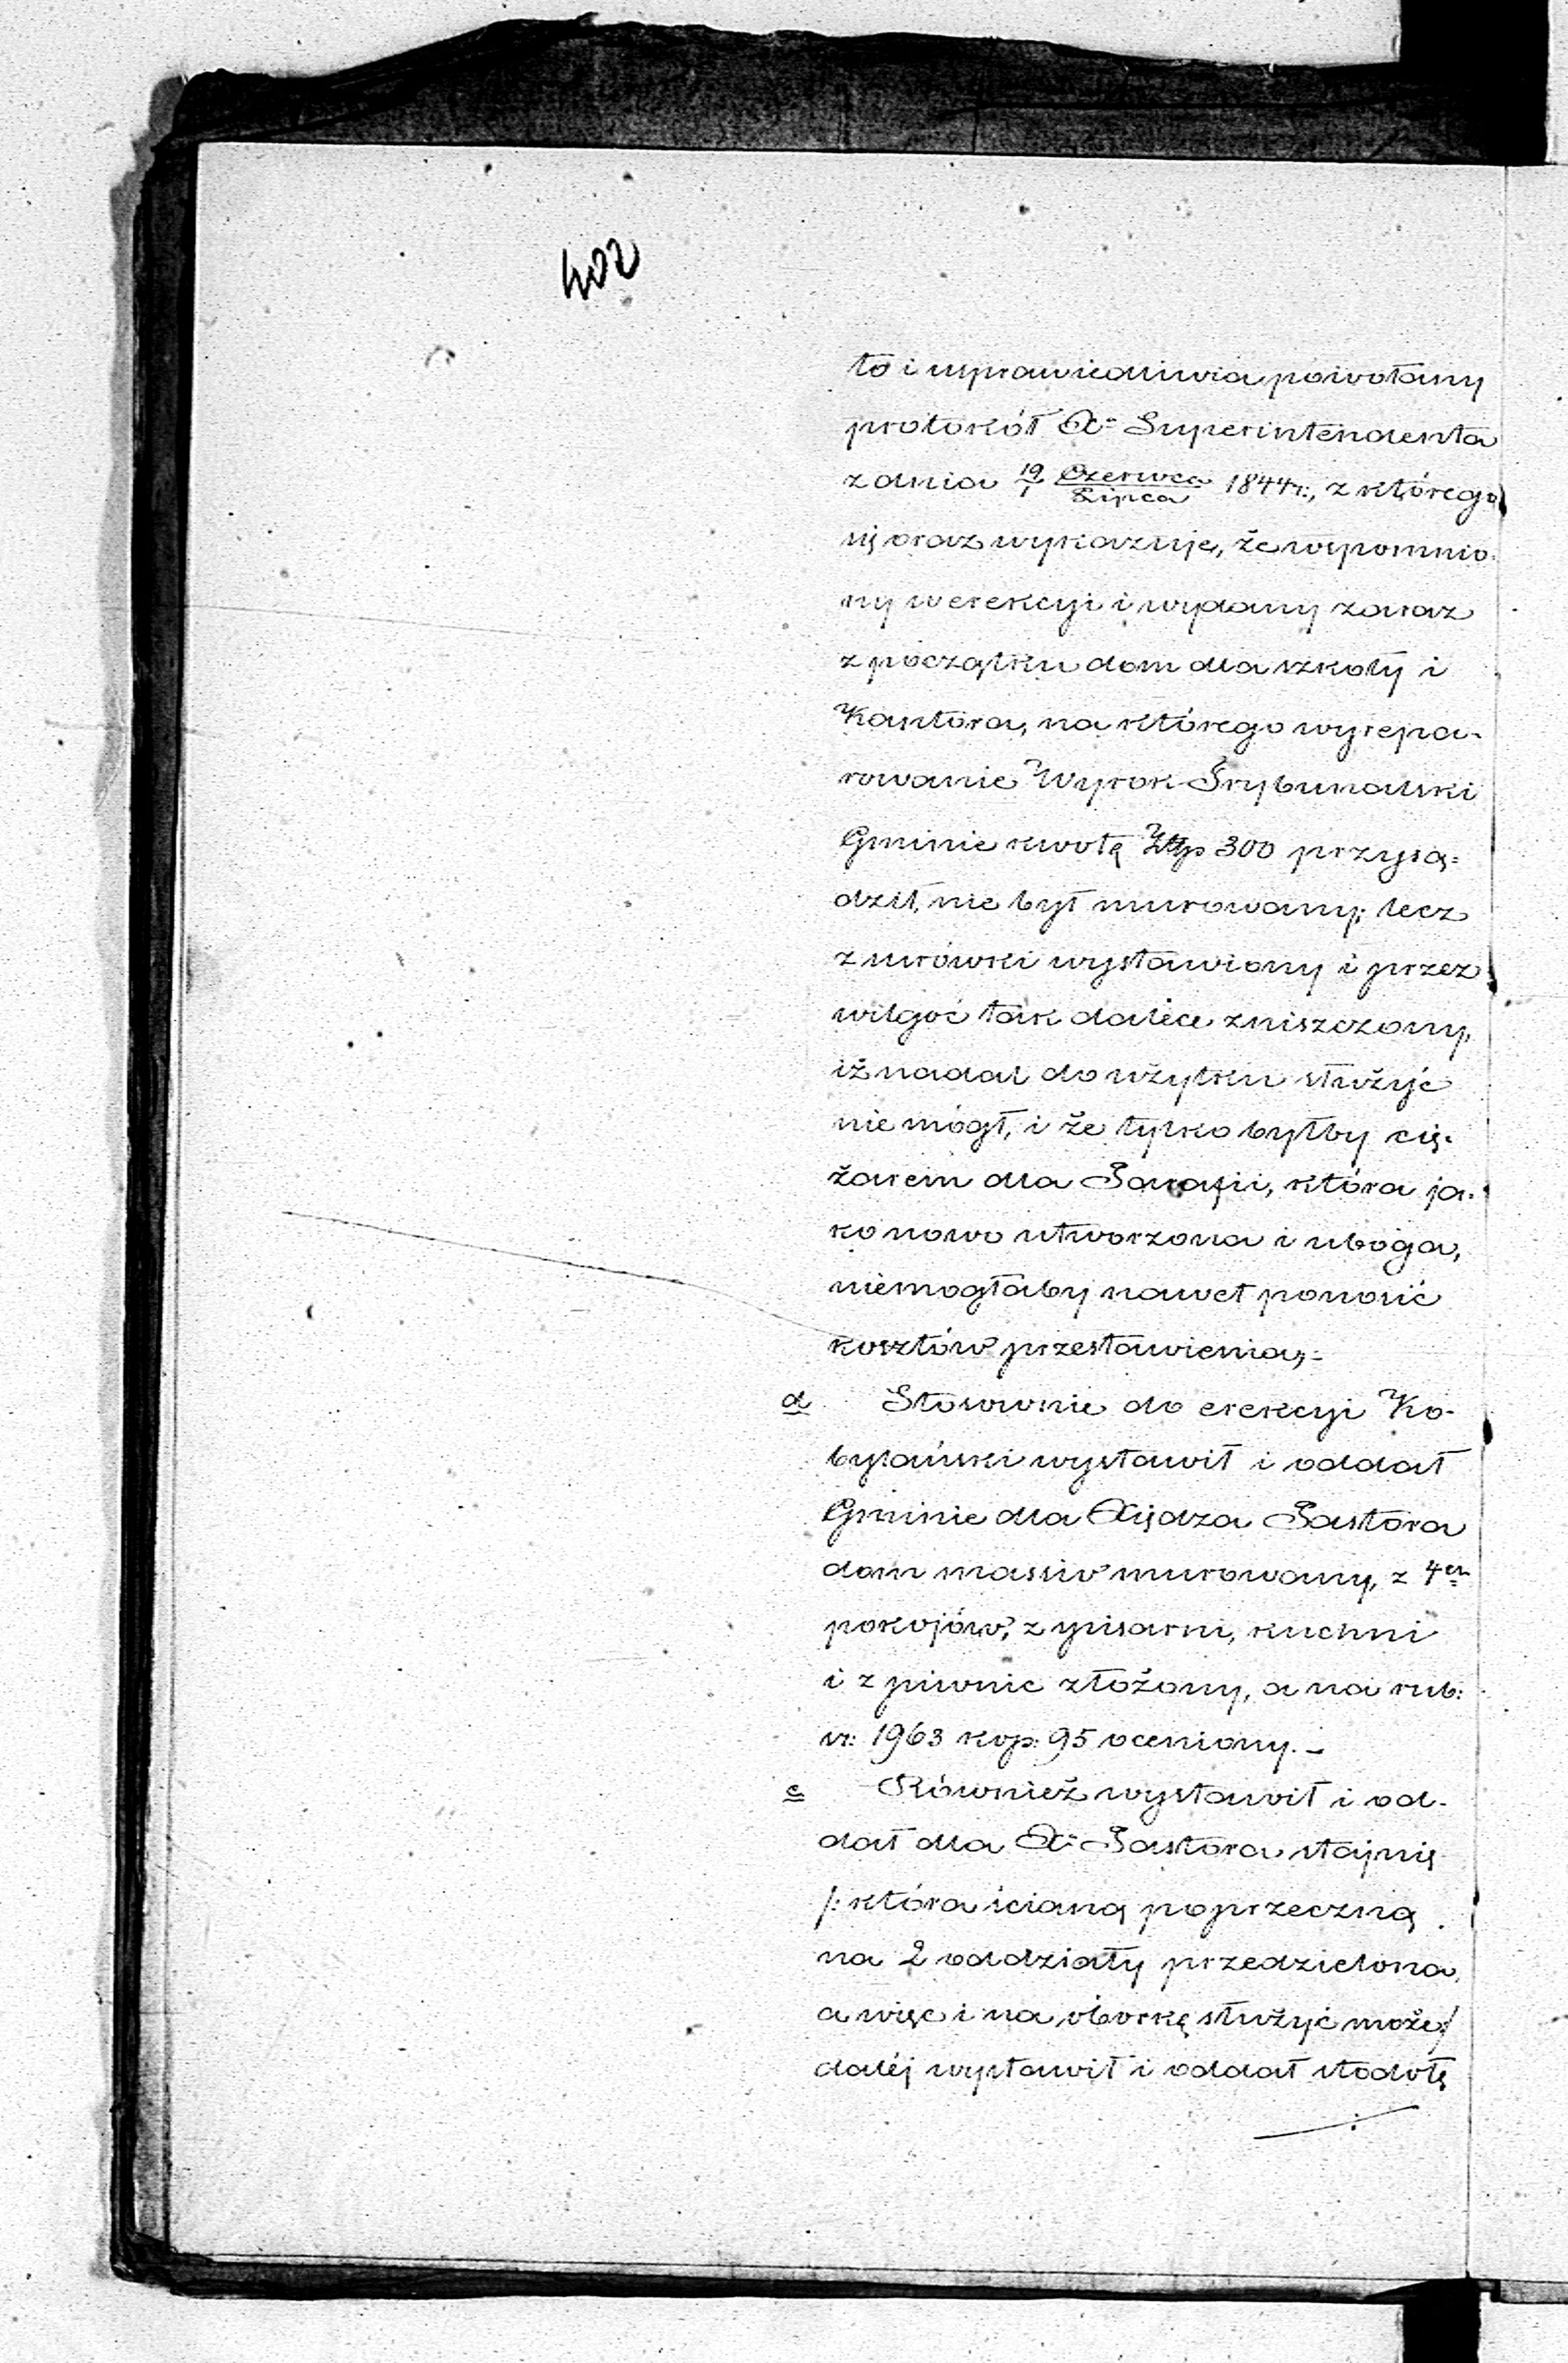 402
to i usprawiedliwia powołany
protokół X: Superintendenta
z dnia 19/1 Czerwca/Lipca 1844 r:, z którego
się oraz wykazuje, że wspomnio-
ny w erekcyi i wydany zaraz
z początku dom dla szkoły i
Kantora, na którego wyrepa-
rowanie Wyrok Trybunalski
Gminie kwotę Złtp 300 przysą=
dził, nie był murowany; lecz
z murówki wystawiony i przez
wilgoć tak dalece zniszczony,
iż nadal do użytku służyć
nie mógł, i że tylko byłby cię-
żarem dla Parafii, która ja-
ko nowo utworzona i uboga,
niemogłaby nawet ponosić
kosztów przestawienia;-
d Stosownie do erekcyi Ko-
bylański wystawił i oddał
Gminie dla Xiędza Pastora
dom massiv murowany, z 4ch
pokojów, z spisarni, kuchni
i z piwnic złożony, a na rub:
sr: 1963 kop: 95 oceniony. -
e Również wystawił i od-
dał dla X: Pastora stajnię
/: która ścianą poprzeczną
na 2 oddziały przedzielona,
a więc i na oborkę służyć może :/
daléj wystawił i oddał stodołę